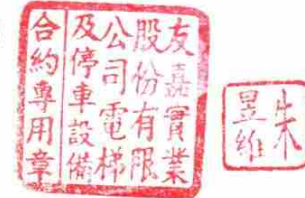 友嘉實業
股份有限
公司電梯
及停車設備
合約專用章
朱
昱維